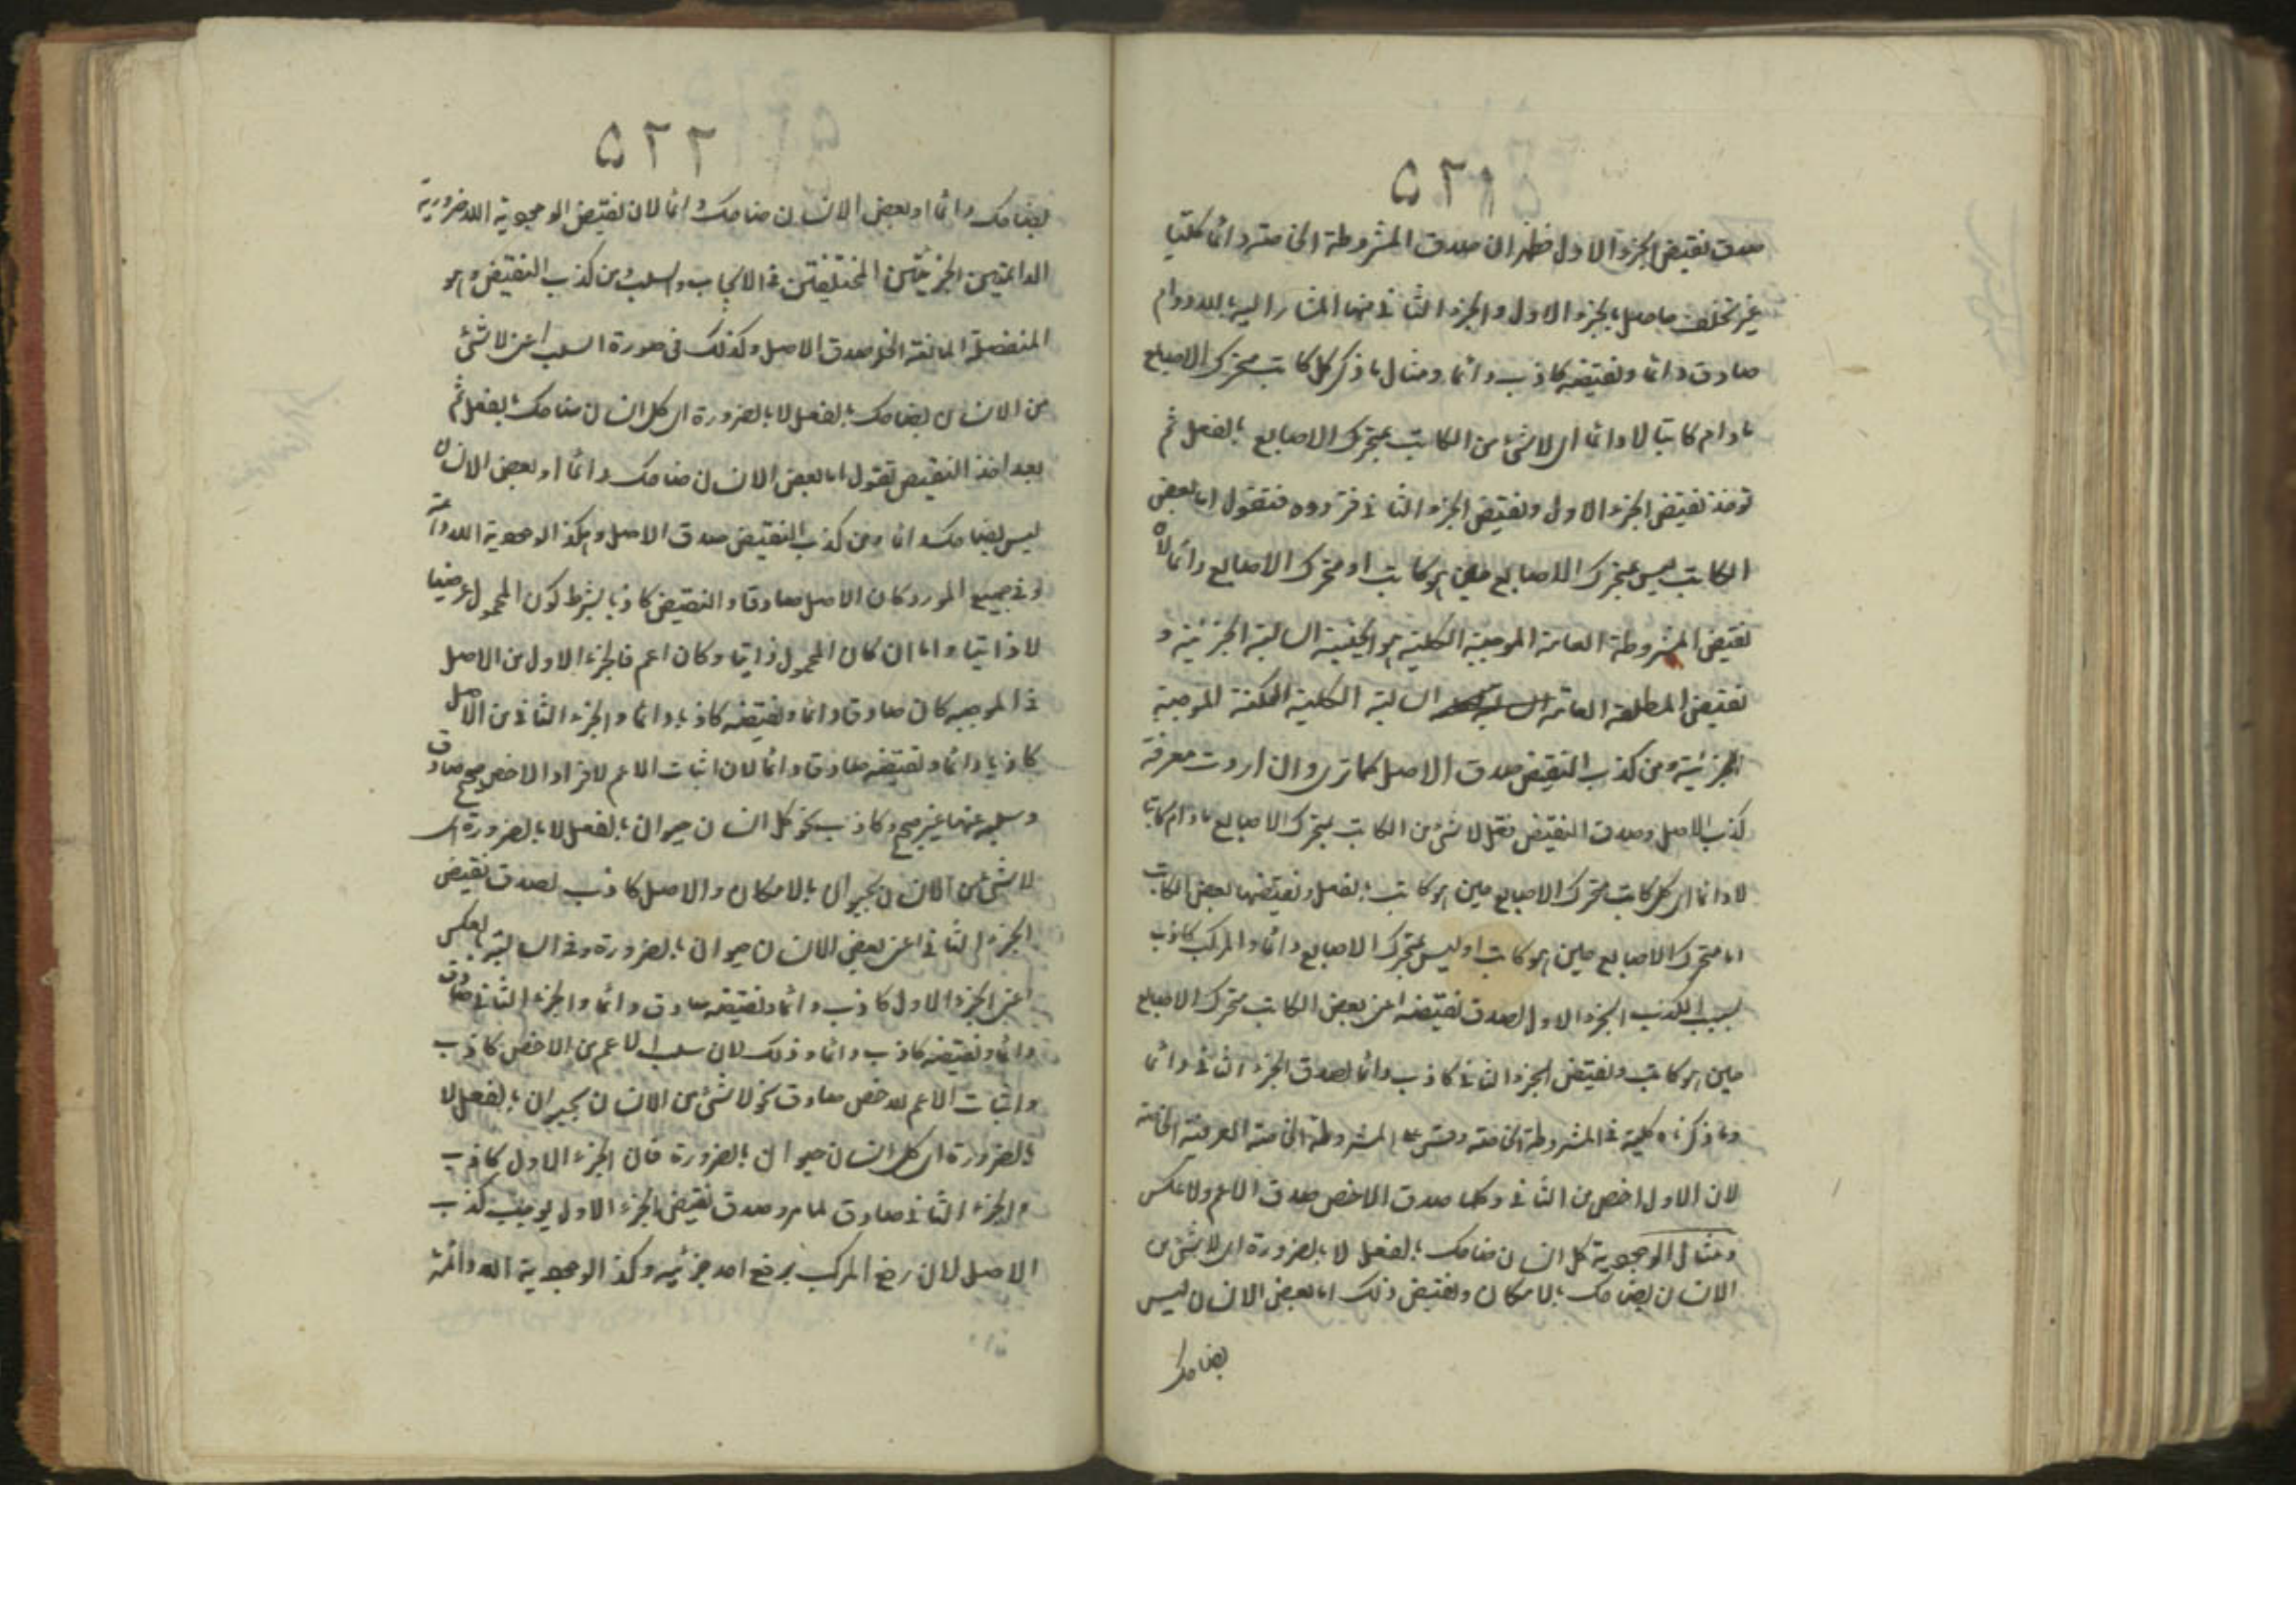 ٥٢١
صدق نقيض الجزء الاول فظهر ان صدق المشروطة الخاصة دائما كليا
غير تخلف حاصل بالجزء الاول والجزء الثانى منها المشار اليه باللادوام
صادق دائما ونقيضه كاذب دائما ومثال ما ذكر كل كاتب متحرك الاصابع
مادام كاتبا لا دائما اى لا شئ من الكاتب بمتحرك الاصابع بالفعل ثم
توخذ نقيض الجزء الاول ونقيض الجزء الثانى فتردده فتقول اما بعض
الكاتب ليس بمتحرك الاصابع حين هو كاتب او متحرك الاصابع دائما لان
نقيض المشروطة العامة الموجبة الكلية هو الحينية السالبة الجزئية و
نقيض المطلقة العامة السالبة الكلية الممكنة الموجبة
الجزئية ومن كذب النقيض صدق الاصل كما ترى وان اردت معرفة
كذب الاصل وصدق النقيض فقل لا شئ من الكاتب بمتحرك الاصابع مادام كاتبا
لا دائما اى كل كاتب متحرك الاصابع حين هو كاتب بالفعل ونقيضها بعض الكاتب
اما متحرك الاصابع حين هو كاتب او ليس بمتحرك الاصابع دائما والمركب كاذب
بسبب الكذب الجزء الاول لصدق نقيضه اعنى بعض الكاتب متحرك الاصابع
حين هو كاتب ونقيض الجزء الثانى كاذب دائما لصدق الجزء الثانى دائما
وما ذكرناه كلية فى المشروطة الخاصة وقس على المشروطة الخاصة العرفية الخاصة
لان الاول اخص من الثانى وكلما صدق الاخص صدق الاعم ولا عكس
ومثال الوجودية كل انسان ضاحك بالفعل لا بالضرورة اى لا شئ من
الانسان بضاحك بالامكان ونقيض ذلك اما بعض الانسان ليس
بضاحك
٥٢٢
بضاحك دائما او بعض الانسان ضاحك دائما لان نقيض الوجودية اللاضرورية
الدائمتين الجزئيتين المختلفتين فى الايجاب والسلب ومن كذب النقيض وهو
المنفصلة المانعة الخلو صدق الاصل وكذلك فى صورة السلب اعنى لا شئ
من الانسان بضاحك بالفعل لا بالضرورة اى كل انسان ضاحك بالفعل ثم
بعد اخذ النقيض تقول اما بعض الانسان ضاحك دائما او بعض الانسان
ليس بضاحك دائما ومن كذب النقيض صدق الاصل وهكذا الوجودية اللادائمة
وفى جميع المورد كان الاصل صادقا والنقيض كاذبا بشرط كون المحمول عرضيا
لا ذاتيا واما ان كان المحمول ذاتيا وكان اعم فالجزء الاول من الاصل
فى الموجبه كان صادقا دائما ونقيضه كاذبا دائما والجزء الثانى من الاصل
كاذبا دائما ونقيضه صادقا دائما لان اثبات الاعم لافراد الاخص صحيح صادق
وسلبه عنها غير صحيح وكاذب نحو كل انسان حيوان بالفعل لا بالضرورة اى
لا شئ من الانسان بحيوان بالامكان والاصل كاذب لصدق نقيض
الجزء الثانى اعنى بعض الانسان حيوان بالضرورة وفى السالبة بالعكس
اعنى الجزء الاول كاذب دائما ونقيضه صادق دائما والجزء الثانى صادق
دائما ونقيضه كاذب دائما وذلك لان سلب الاعم من الاخص كاذب
واثبات الاعم للاخص صادق نحو لا شئ من الانسان بحيوان بالفعل لا
بالضرورة اى كل انسان حيوان بالضرورة فان الجزء الاول كاذب
والجزء الثانى صادق لما مر وصدق نقيض الجزء الاول يوجب كذب
الاصل لان رفع المركب برفع احد جزئيه وكذا الوجودية اللادائمة